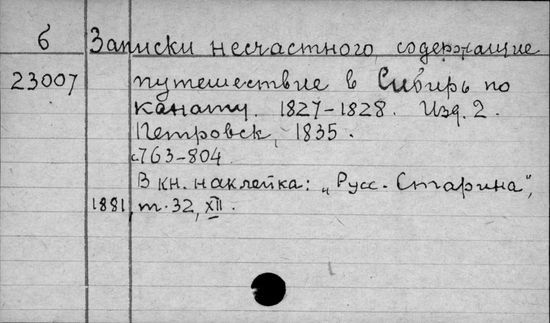 б Записки несчастного, содержащие
23007 путешествие в Сибирь по
канату. 1827-1828. Изд. 2.
Петровск, 1835.
с763-804
В кн. наклейка: „Русс. Старина",
1881, т. 32, XII.